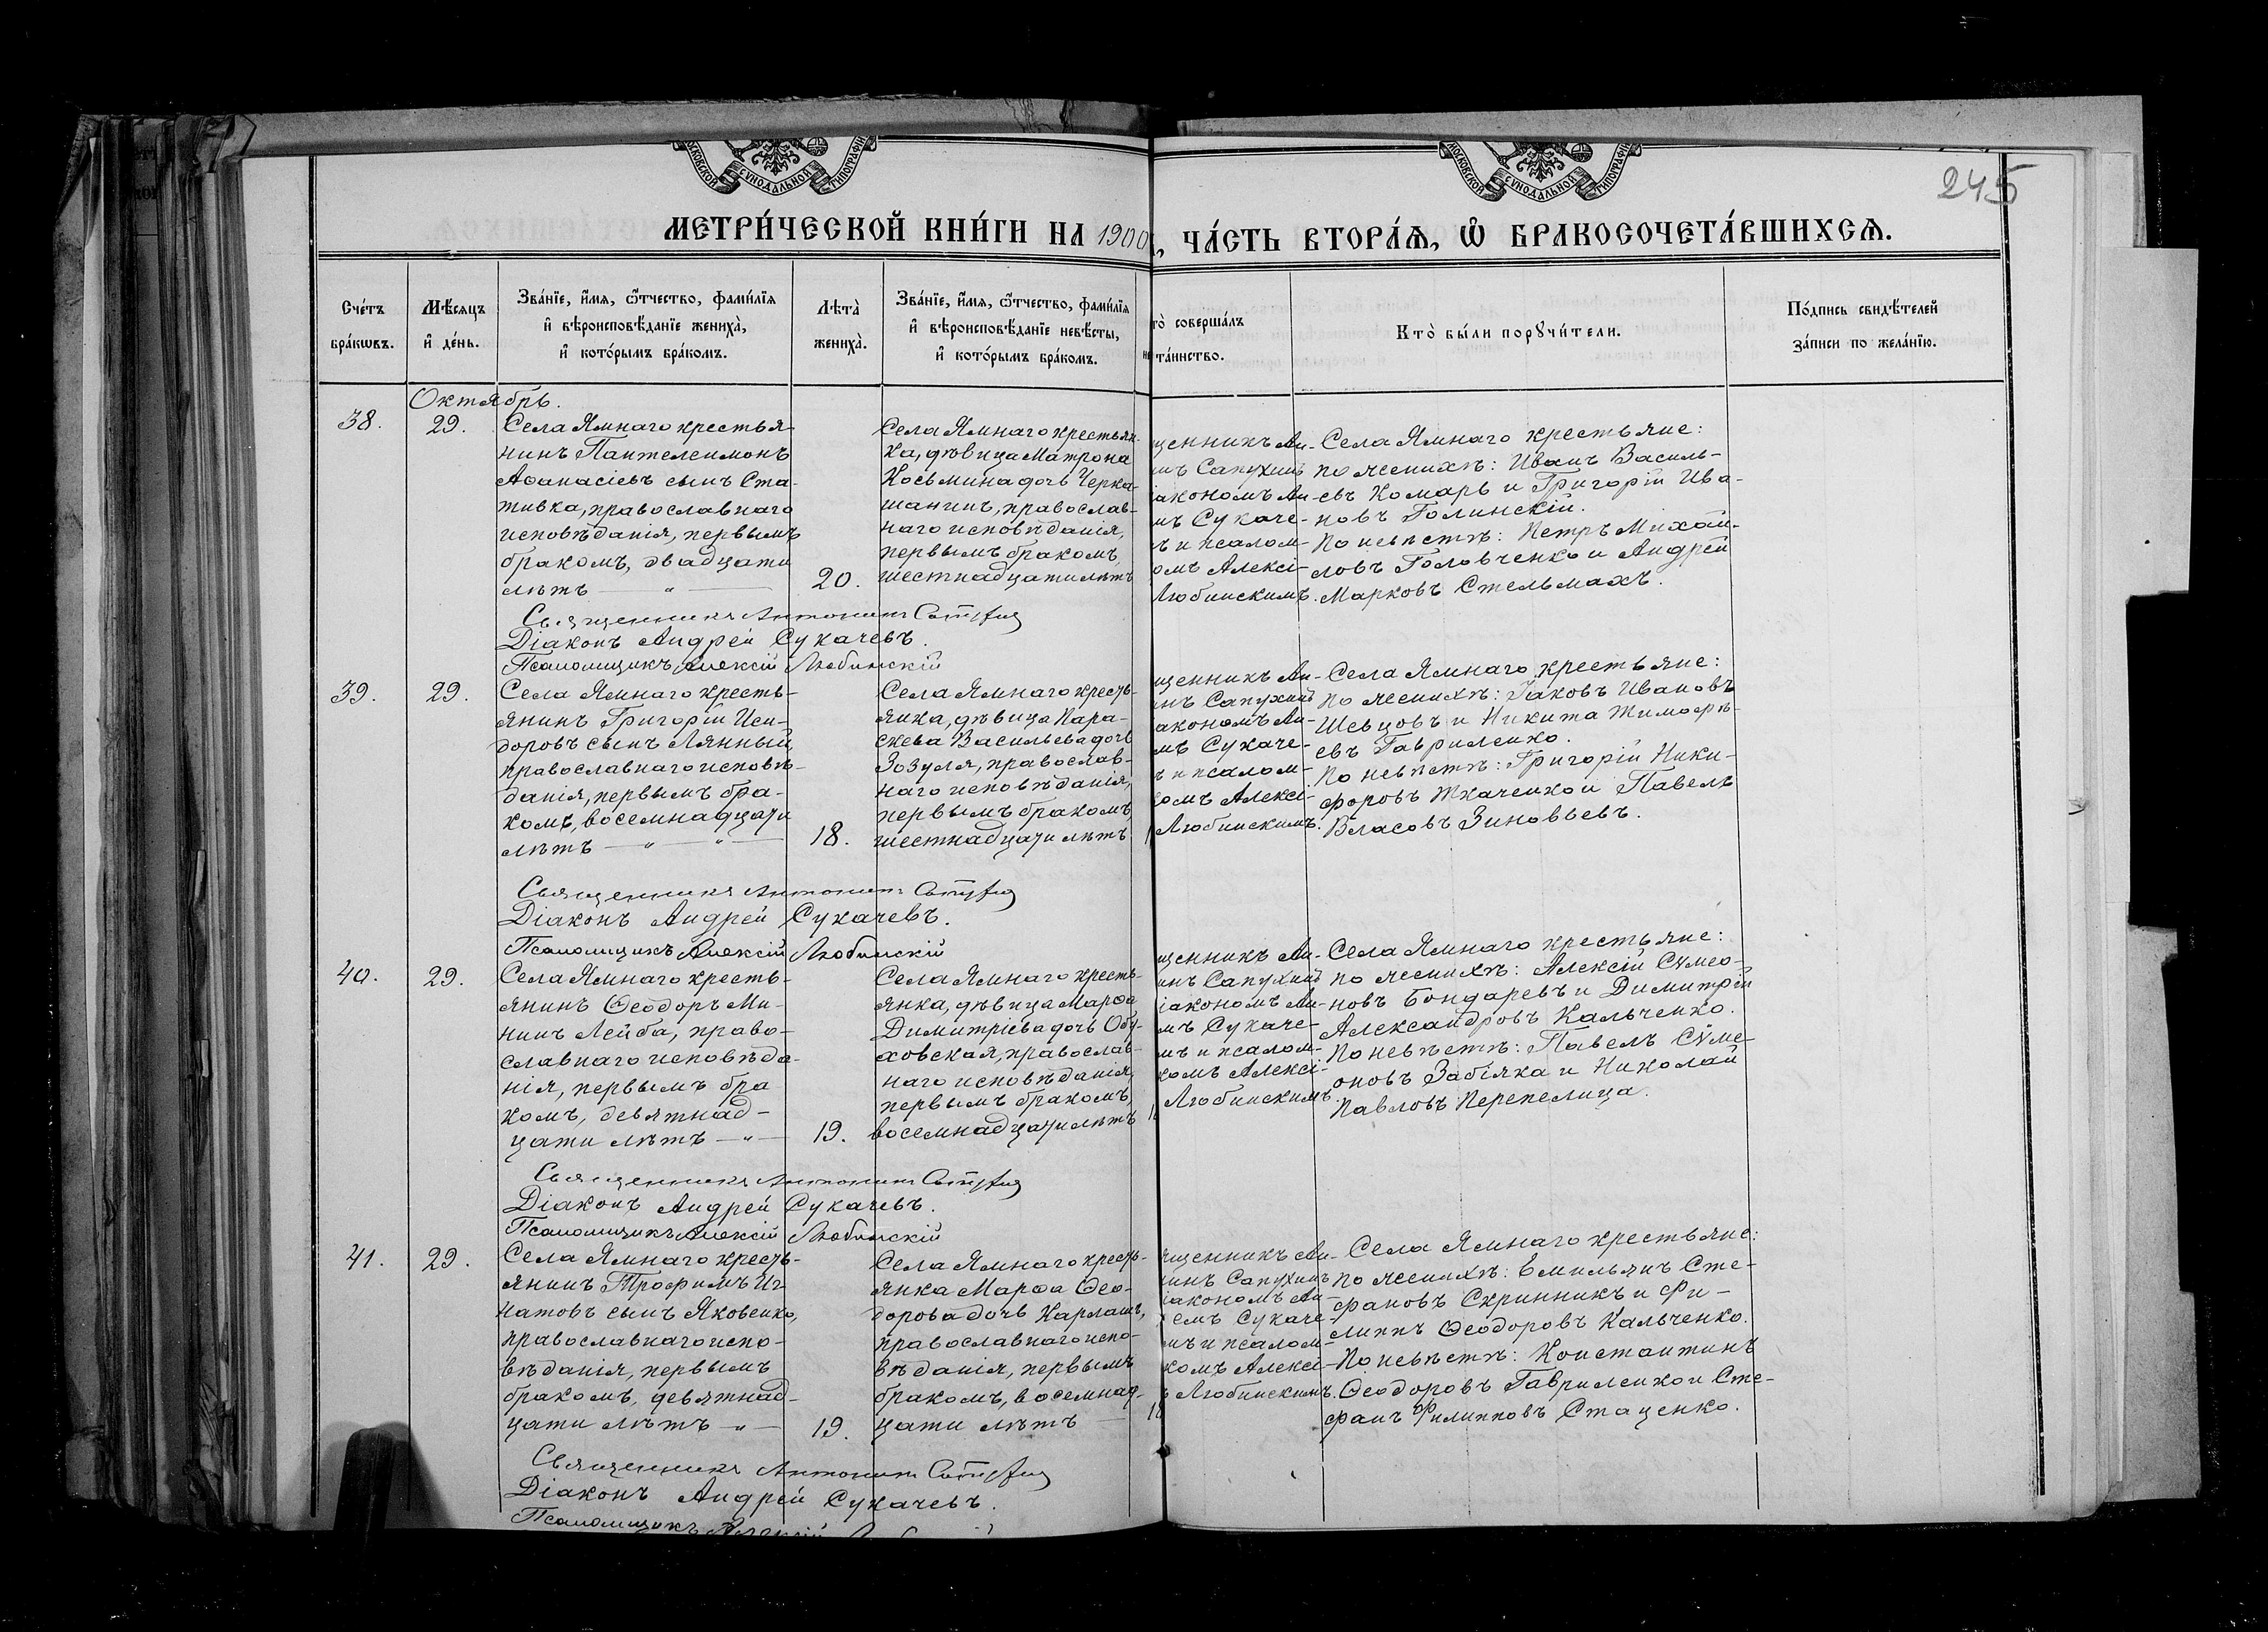 МОСКОВСКОЙ СѴНОДАЛЬНОЙ ТИПОГРАФІИ
МОСКОВСКОЙ СѴНОДАЛЬНОЙ ТИПОГРАФІИ
245
МЕТРИ́ЧЕСКОЙ КНИ́ГИ НА 1900, ЧА́СТЬ ВТОРА́Ѧ, Ѡ БРАКОСОЧЕТА́ВШИХСѦ.
Сче́тъ
бра́кѡвъ.
Мѣ́сѧцъ
и҆ де́нь.
Зва́нїе, и҆́мѧ, ѻ҆́тчество, фами́лїѧ
и҆ вѣроисповѣ́данїе жениха̀,
и҆ кото́рымъ бра́комъ.
Лѣ́та̀
жениха̀.
Зва́нїе, и҆́мѧ, ѻ҆́тчество, фами́лїѧ
и҆ вѣроисповѣ́данїе невѣ́сты,
и҆ кото́рымъ бра́комъ.
то̀ соверша́лъ
та́инство.
Кто̀ бы́ли порꙋчи́тели.
По́дпись свидѣ́телей
за́писи по жела́нїю.
Октябрь.
38.
29.
Села Ямнаго крестья-
нинъ Пантелеимонъ
Аѳанасіевъ сынъ Ста-
тивка, православнаго
исповѣданія, первымъ
бракомъ, двадцати
лѣтъ
20.
Села Ямнаго крестьян-
ка, дѣвица Матрона
Косьмина дочь Черка-
шанинъ, православ-
наго исповѣданія,
первымъ бракомъ,
шестнадцати лѣтъ
щенникъ Ан-
инъ Сапухинъ
іакономъ Ан-
мъ Сукаче-
ъ и псалом-
омъ Алексі-
Любинскимъ.
Села Ямнаго крестьяне:
по женихѣ: Иванъ Василь-
евъ Комарь и Григорій Ива-
новъ Голинскій.
По невѣстѣ: Петръ Михай-
ловъ Головченко и Андрей
Марковъ Стельмахъ.
Священникъ Антонинъ
Діаконъ Андрей Сукачевъ.
Псаломщикъ Алексій Любинскій
39.
29.
Села Ямнаго кресть-
янинъ Григорій Иси-
доровъ сынъ Лянный,
православнаго исповѣ-
данія, первымъ бра-
комъ, восемнадцати
лѣтъ
18.
Села Ямнаго кресть-
янка, дѣвица Пара-
скева Васильева дочь
Зозуля, православ-
наго исповѣданія,
первымъ бракомъ,
шестнадцати лѣтъ
щенникъ Ан-
инъ Сапухинъ
акономъ Ан-
мъ Сукаче-
ъ и псалом-
омъ Алексі-
Любинскимъ.
Села Ямнаго крестьяне:
по женихѣ: Іаковъ Ивановъ
Шевцовъ и Никита Тимофѣ-
евъ Гавриленко.
По невѣстѣ: Григорій Ники-
форовъ Ткаченко и Павелъ
Власовъ Зиновьевъ.
Священникъ Антонинъ
Діаконъ Андрей Сукачевъ.
Псаломщикъ Алексій Любинскій
40.
29.
Села Ямнаго кресть-
янинъ Ѳеодоръ Ми-
нинъ Лейба, право-
славнаго исповѣда-
нія, первымъ бра
комъ, девятнад-
цати лѣтъ
19.
Села Ямнаго кресть-
янка, дѣвица Марѳа
Димитріева дочь Обу-
ховская, православ-
наго исповѣданія,
первымъ бракомъ,
восемнадцати лѣтъ
щенникъ Ан-
инъ Сапухинъ
іакономъ Ан-
мъ Сукаче-
мъ и псалом-
комъ Алексі-
Любинскимъ.
Села Ямнаго крестьяне:
по женихѣ: Алексій Сѵмео-
новъ Бондаревъ и Димитрій
Александровъ Кальченко.
По невѣстѣ: Павелъ Сѵме-
оновъ Забіяка и Николай
Павловъ Перепелица.
Священникъ Антонинъ
Діаконъ Андрей Сукачевъ.
Псаломщикъ Алексій Любинскій
41.
29.
Села Ямнаго кресть-
янинъ Трофимъ Иг-
натовъ сынъ Яковенко,
православнаго испо-
вѣданія, первымъ
бракомъ, девятнад-
цати лѣтъ
19.
Села Ямнаго кресть-
янка Марѳа Ѳео-
дорова дочь Карлашъ,
православнаго испо-
вѣданія, первымъ
бракомъ, восемнад-
цати лѣтъ
18
ященникъ Ан-
нинъ Сапухинъ
іакономъ Ан-
емъ Сукаче-
мъ и псалом-
комъ Алексі-
ъ Любинскимъ.
Села Ямнаго крестьяне:
по женихѣ: Емильянъ Сте-
фановъ Скринникъ и Фи-
липпъ Ѳеодоровъ Кальченко.
По невѣстѣ: Константинъ
Ѳеодоровъ Гавриленко и Сте-
фанъ Филипповъ Стаценко.
Священникъ Антонинъ
Діаконъ Андрей Сукачевъ.
Псаломщикъ Алексій